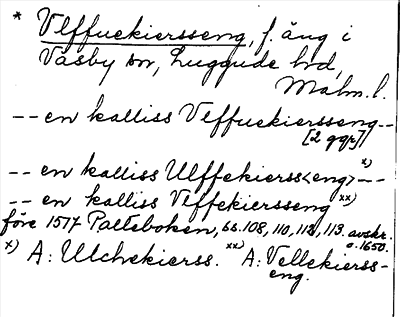 * Vlffuekiersseng, f. äng i
Väsby sn, Luggude hd,
Malm. l.
-- en kalliss Vlffuekiersseng --
[2 ggr]
-- en kalliss Ulffekierss<eng> x) --
-- en kalliss Vlffekiersseng xx)
före 1517 Palteboken, ss. 108, 110, 112, 113. avskr.
o. 1650.
x) A: Ulchekierss. xx) A: Vellekierss-
eng.